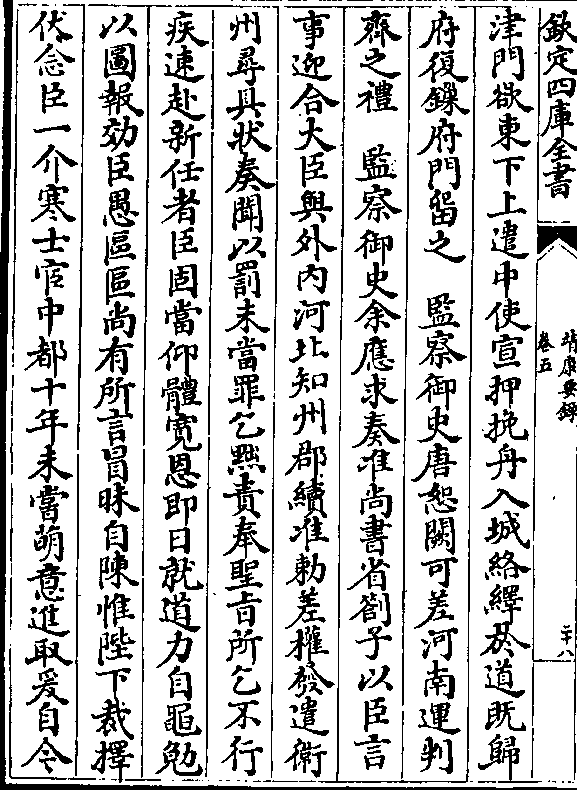 欽定四庫全書
靖康要錄
卷五
二十八
津門欲東下上遣中使宣押挽舟入城絡繹於道既歸
府復鏁府門留之　監察御史唐恕闕可差河南運判
齊之禮　監察御史余應求奏准尚書省劄子以臣言
事迎合大臣與外内河北知州郡續准勅差權發遣衛
州尋具狀奏聞以罰未當罪乞黜責奉聖旨所乞不行
疾速赴新任者臣固當仰體寛恩即日就道力自黽勉
以圖報効臣愚區區尚有所言冒昧自陳惟陛下裁擇
伏念臣一介寒士官中都十年未嘗萌意進取爰自今